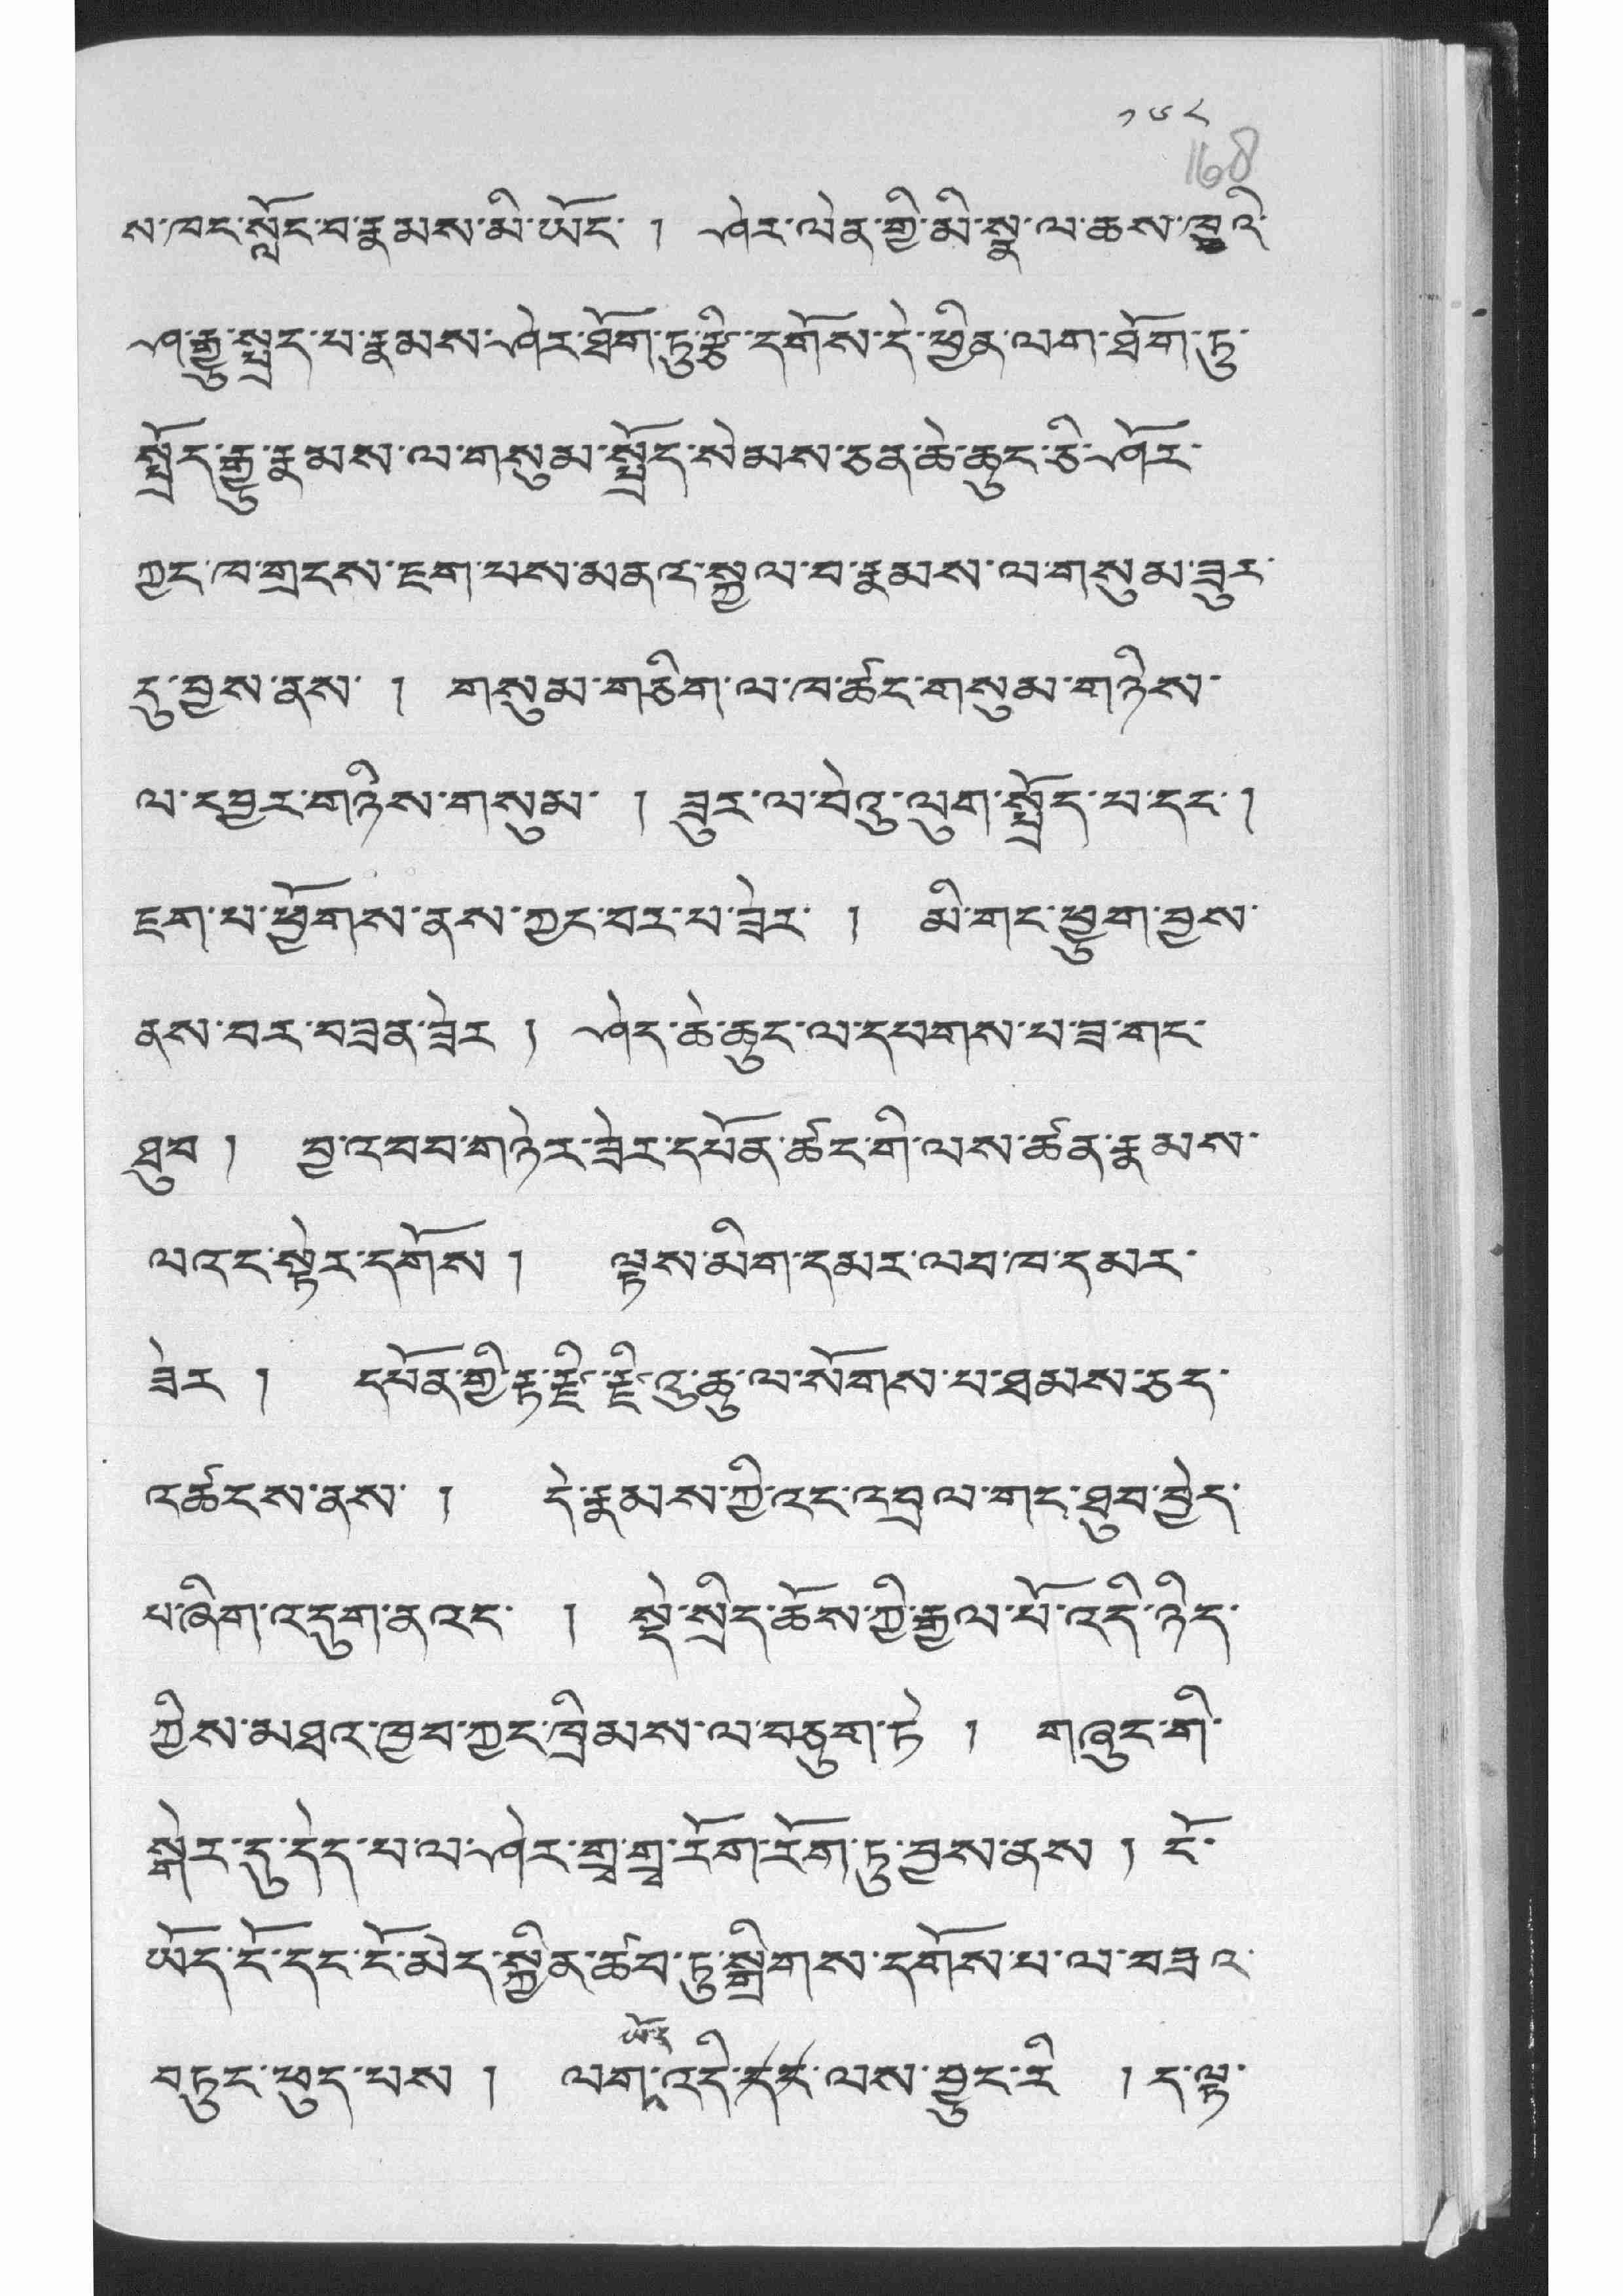 ༡༦༨
168
ས་ཁང་སློང་བ་རྣམས་མི་ཡོང་ །  ཤེར་ལེན་གྱི་མི་སྣ་ལ་ཆས་ཁྱུའི་
ཤ་རྒྱུ་སྤྲད་པ་རྣམས་ཤེར་ཐོག་ཏུ་རྩི་དགོས་དེ་ཕྱིན་ལག་ཐོག་ཏུ་
སྤྲོད་རྒྱུ་རྣམས་ལ་གསུམ་སྤྲོད་སེམས་ཅན་ཆེ་ཆུང་ཅི་ཤོར་
ཀྱང་ཁ་གྲངས་ཇག་པས་མནར་སྐྱལ་བ་རྣམས་ལ་གསུམ་ཟུར་
དུ་བྱས་ནས་ །  གསུམ་གཅིག་ལ་ཁ་ཚང་གསུམ་གཉིས་
ལ་དབྱར་གཉིས་གསུམ་ །  ཟུར་ལ་བེའུ་ལུག་སྤྲོད་པ་དང་ །
ཇག་པ་ཕྱོགས་ནས་ཀྱང་བར་པ་ཟེར་ །  མི་གང་ཕྱུག་བྱས་
ནས་བར་བཟན་ཟེར །  ཤེད་ཆེ་ཆུང་ལ་དཔགས་པ་ཟ་གང་
ཐུབ །  བྱ་འབབ་གཉེར་ཟེར་དཔོན་ཚང་གི་ལས་ཚན་རྣམས་
ལའང་སྟེར་དགོས །  ལྟས་མིག་དམར་ལབ་ཁ་དམར་
ཟེར །  དཔོན་གྱི་རྟ་རྫི་རྫིའུ་ཆུ་ལ་སོགས་པ་ཐམས་ཅད་
འཚངས་ནས་ །  དེ་རྣམས་ཀྱི་འང་འབྲལ་གང་ཐུབ་བྱེད་
པ་ཞིག་འདུག་ནའང་ །  སྡེ་སྲིད་ཆོས་ཀྱི་རྒྱལ་པོ་འདི་ཉིད་
ཀྱིས་མཐའ་ཁྱབ་ཀྱང་ཁྲིམས་ལ་བཅུག་ཏེ །  གཞུང་གི་
སྒེར་དུ་དེད་པ་ལ་ཤེར་གྲྭ་གྲྭ་རོག་རོག་ཏུ་བྱས་ནས །  ངོ་
ཡོད་ངོ་དང་ངོ་མེད་སྐྱིན་ཚབ་ཏུ་སྒྲིགས་དགོས་པ་ལ་བཟའ་
བཏུང་ཕུད་པས །  ལག་ཡོད་འདི་ལས་བྱུང་རི །  ད་ལྟ་